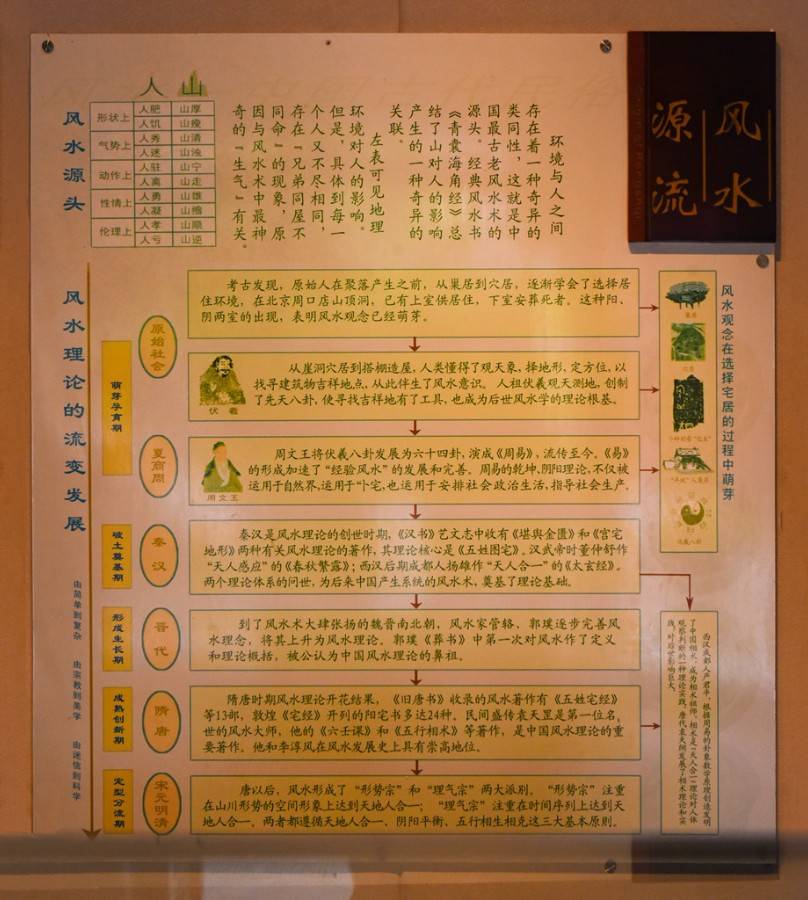 风水
源流
风水源头
人 山
形状上 人肥 山厚
人饥 山瘦
气势上 人秀 山清
人迷 山浊
动作上 人驻 山宁
人离 山走
性情上 人勇 山雄
人凝 山缩
伦理上 人孝 山顺
人亏 山逆
环境与人之间
存在着一种奇异的
类同性,这就是中
国最古老风水术的
源头。经典风水书
《青囊海角经》总
结了山对人的影响
产生的一种奇异的
关联。
左表可见地理
环境对人的影响。
但是,具体到每一
个人又不尽相同,
存在“兄弟同屋不
同命”的现象,原
因与风水术中最神
奇的“生气”有关。
风水理论的流变发展
由简单到复杂 由宗教到美学 由迷信到科学
萌芽孕育期
原始社会
考古发现,原始人在聚落产生之前,从巢居到穴居,逐渐学会了选择居
住环境,在北京周口店山顶洞,已有上室供居住,下室安葬死者。这种阳、
阴两室的出现,表明风水观念已经萌芽。
从崖洞穴居到搭棚造屋,人类懂得了观天象,择地形,定方位,以
找寻建筑物吉祥地点,从此伴生了风水意识。人祖伏羲观天测地,创制
了先天八卦,使寻找吉祥地有了工具,也成为后世风水学的理论根基。
伏羲
夏商周
周文王将伏羲八卦发展为六十四卦,演成《周易》,流传至今。《易》
的形成加速了“经验风水”的发展和完善。周易的乾坤、阴阳理论,不仅被
运用于自然界,运用于“卜宅,也运用于安排社会政治生活,指导社会生产。
周文王
破土奠基期
秦汉
秦汉是风水理论的创世时期,《汉书》艺文志中收有《堪舆金匮》和《宫宅
地形》两种有关风水理论的著作,其理论核心是《五姓图宅》。汉武帝时董仲舒作
“天人感应”的《春秋繁露》;西汉后期成都人扬雄作“天人合一”的《太玄经》。
两个理论体系的问世,为后来中国产生系统的风水术,奠基了理论基础。
形成生长期
晋代
到了风水术大肆张扬的魏晋南北朝,风水家管辂、郭璞逐步完善风
水理念,将其上升为风水理论。郭璞《葬书》中第一次对风水作了定义
和理论概括,被公认为中国风水理论的鼻祖。
成熟创新期
隋唐
隋唐时期风水理论开花结果,《旧唐书》收录的风水著作有《五姓宅经》
等13部,敦煌《宅经》开列的阳宅书多达24种。民间盛传袁天罡是第一位名
世的风水大师,他的《六壬课》和《五行相术》等著作,是中国风水理论的重
要著作。他和李淳风在风水发展史上具有崇高地位。
定型分流期
宋元明清
唐以后,风水形成了“形势宗”和“理气宗”两大派别。“形势宗”注重
在山川形势的空间形象上达到天地人合一;“理气宗”注重在时间序列上达到天
地人合一。两者都遵循天地人合一、阴阳平衡、五行相生相克这三大基本原则。
风水观念在选择宅居的过程中萌芽
巢居
穴居
西汉成都人严君平,根据周易的卦象数学原理创造发明
了中国相术,成为相术祖师。相术是“天人合一”理论对人体
观察判断的一种理论实践。唐代袁天纲发展了相术理论和实
践,对后世影响巨大。